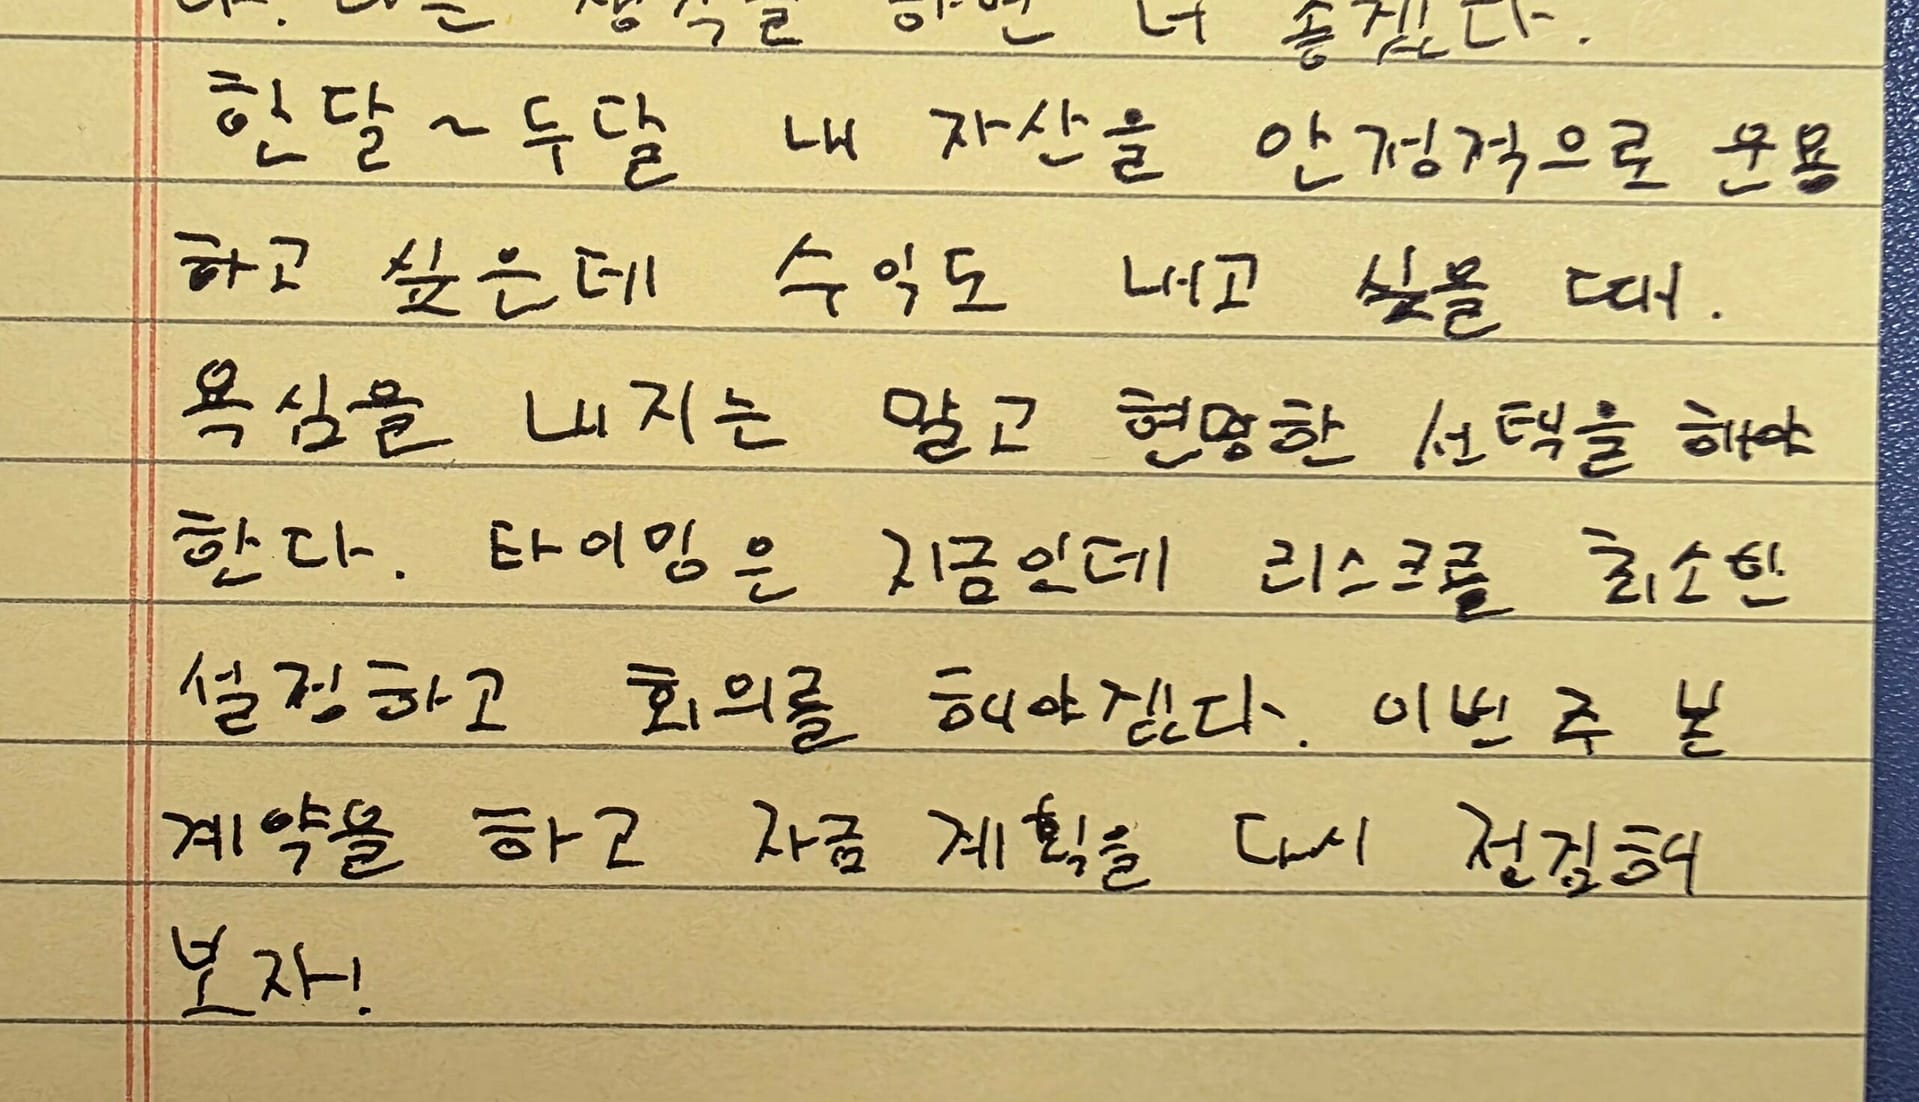 생각을 하면 더 좋겠다.
한달~두달 내 자산을 안정적으로 운용
하고 싶은데 수익도 내고 싶을 때.
욕심을 내지는 말고 현명한 선택을 해야
한다. 타이밍은 지금인데 리스크를 최소한
설정하고 회의를 해야겠다. 이번 주 본
계약을 하고 자금 계획을 다시 점검해
보자!